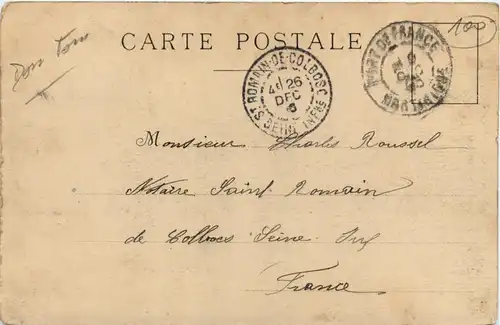 100
CARTE POSTALE
Dom Tom
FORT DE FRANCE
MARTINIQUE
ST ROMAIN-DE-COLBOSC
4E 26
DEC
SEINE INFRE
Monsieur Charles Roussel
Notaire Saint Romain
de Colbocs Seine Inf
France